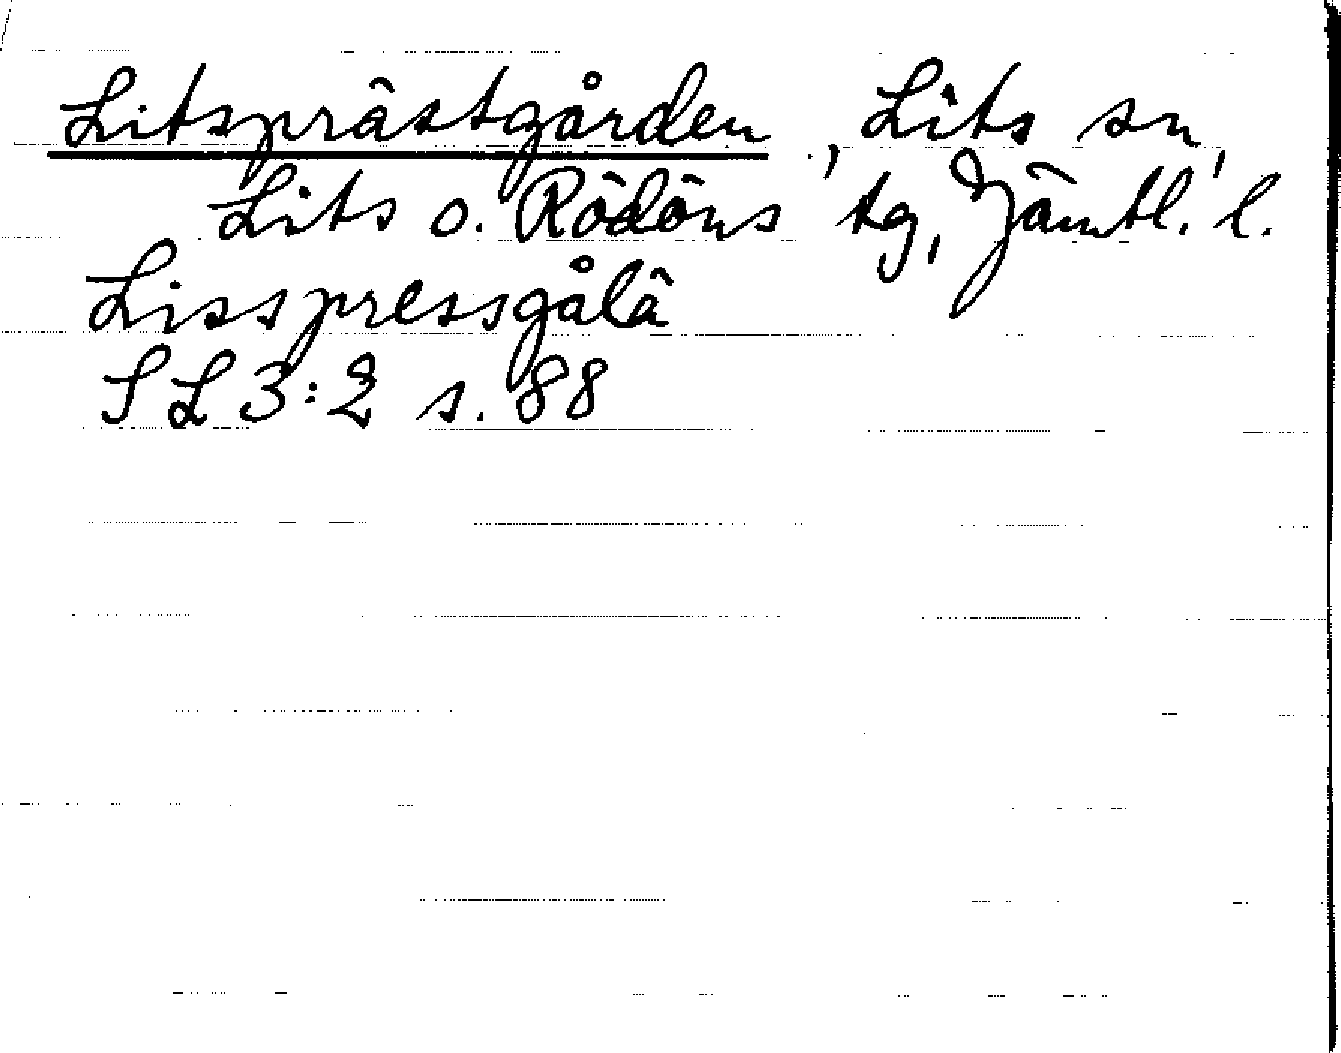 Litsprästgården, Lits sn,
Lits o. Rödöns tg, Jämtl. l.
Lisspressgålä
SL 3:2 s. 88